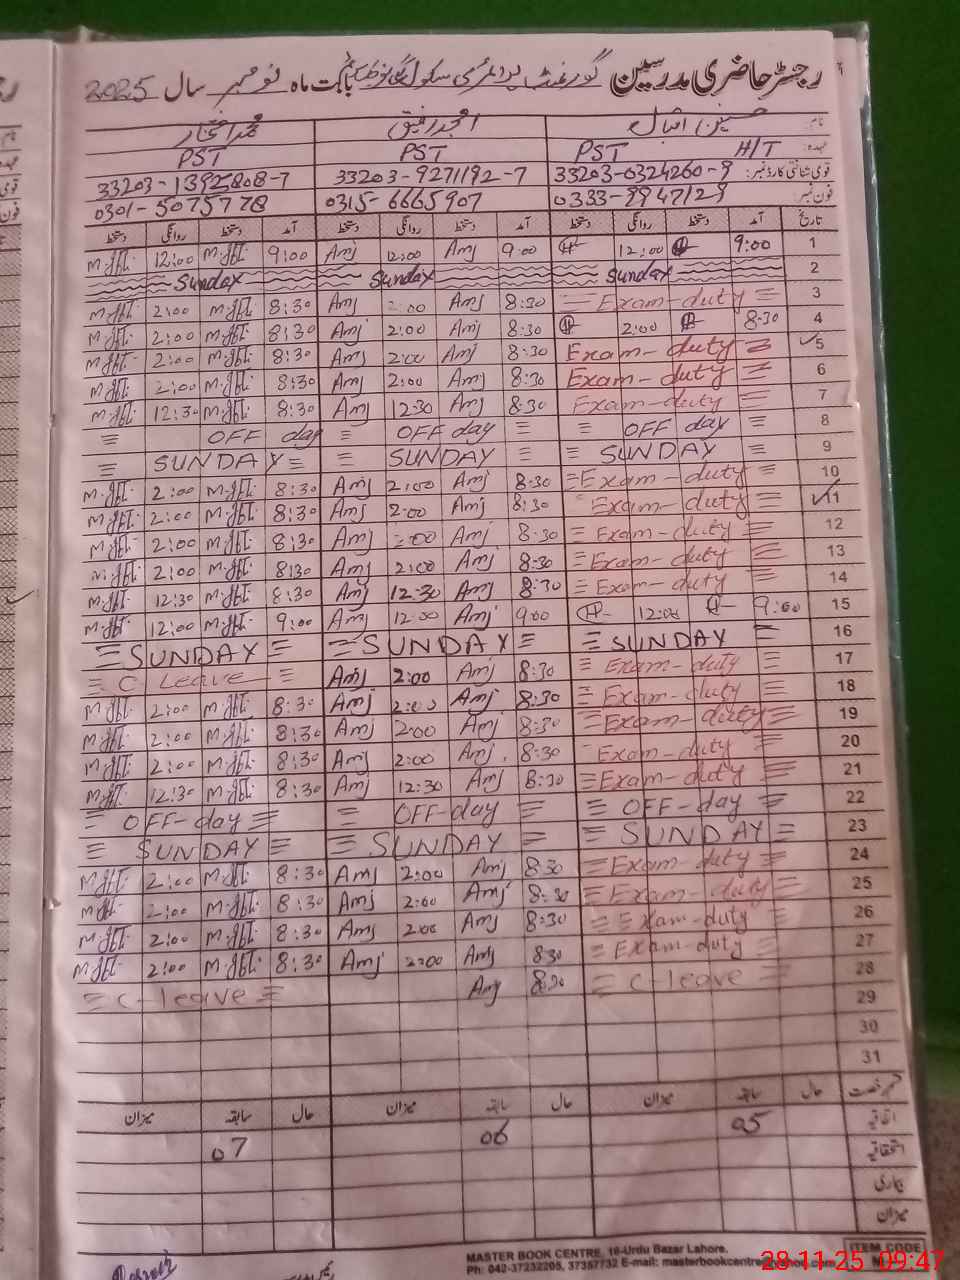 رجسٹر حاضری مدرسین گورنمنٹ پرائمری سکول بابت ماہ نومبر سال 2025
نام: حسنین اقبال امجد رفیق محمد افتخار
عہدہ: H/T PST PST PST
قومی شناختی کارڈ نمبر: 33203-0324260-9 33203-9271192-7 33203-1392808-7
فون نمبر: 0333-9947129 0315-6665907 0301-5075778
تاریخ آمد دستخط روانگی دستخط آمد دستخط روانگی دستخط آمد دستخط روانگی دستخط
1 9:00 12:00 9:00 Amj 12:00 Amj 9:00 12:00
2 Sunday Sunday Sunday
3 Exam-duty 8:30 Amj 2:00 Amj 8:30 2:00
4 8:30 2:00 8:30 Amj 2:00 Amj 8:30 2:00
5 Exam-duty 8:30 Amj 2:00 Amj 8:30 2:00
6 Exam-duty 8:30 Amj 2:00 Amj 8:30 2:00
7 Exam-duty 8:30 Amj 12:30 Amj 8:30 12:30
8 OFF day OFF day OFF day
9 SUNDAY SUNDAY SUNDAY
10 Exam-duty 8:30 Amj 2:00 Amj 8:30 2:00
11 Exam-duty 8:30 Amj 2:00 Amj 8:30 2:00
12 Exam-duty 8:30 Amj 2:00 Amj 8:30 2:00
13 Exam-duty 8:30 Amj 2:00 Amj 8:30 2:00
14 Exam-duty 8:30 Amj 12:30 Amj 8:30 12:30
15 9:00 12:00 9:00 Amj 12:00 Amj 9:00 12:00
16 SUNDAY SUNDAY SUNDAY
17 Exam-duty 8:30 Amj 2:00 Amj C Leave
18 Exam-duty 8:30 Amj 2:00 Amj 8:30 2:00
19 Exam-duty 8:30 Amj 2:00 Amj 8:30 2:00
20 Exam-duty 8:30 Amj 2:00 Amj 8:30 2:00
21 Exam-duty 8:30 Amj 12:30 Amj 8:30 12:30
22 OFF-day OFF-day OFF-day
23 SUNDAY SUNDAY SUNDAY
24 Exam-duty 8:30 Amj 2:00 Amj 8:30 2:00
25 Exam-duty 8:30 Amj 2:00 Amj 8:30 2:00
26 Exam-duty 8:30 Amj 2:00 Amj 8:30 2:00
27 Exam-duty 8:30 Amj 2:00 Amj 8:30 2:00
28 C-leave 8:30 Amj C-leave
29
30
31
حال سابقہ میزان حال سابقہ میزان حال سابقہ میزان
اتفاقیہ 05 06 07
استحقاقیہ
بیماری
میزان
MASTER BOOK CENTRE, 16-Urdu Bazar Lahore.
Ph: 042-37232205, 37357732 E-mail: masterbookcentre@yahoo.com
ITEM CODE
28 11 25 09:47